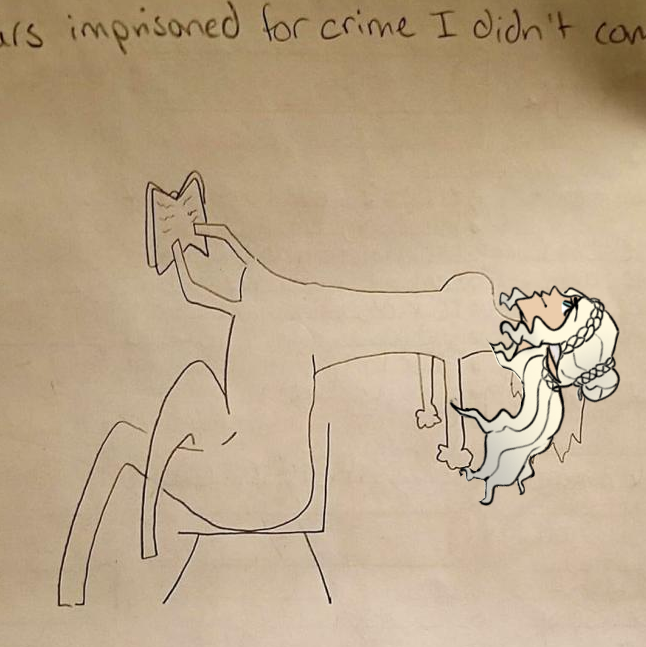 imprisoned for crime I didn't